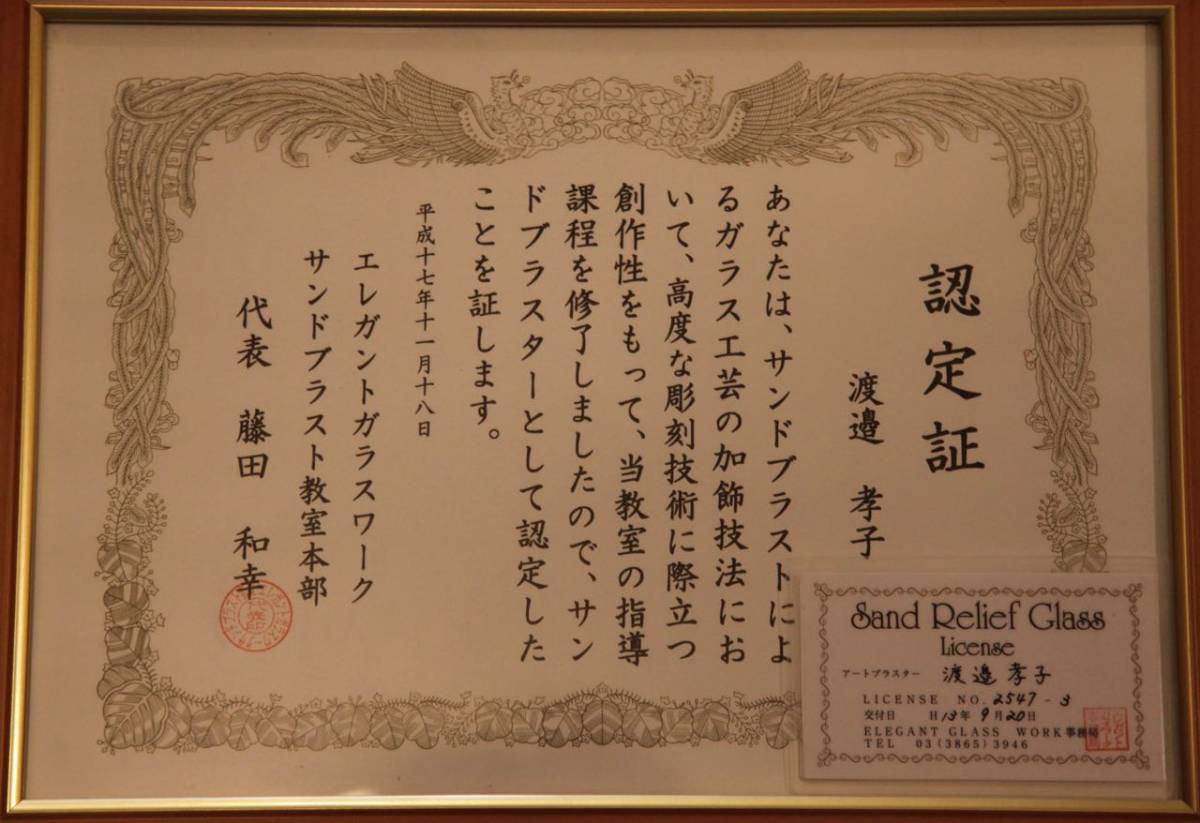 認定証
渡邉 孝子
あなたは、サンドブラストによ
るガラス工芸の加飾技法にお
いて、高度な彫刻技術に際立つ
創作性をもって、当教室の指導
課程を修了しましたので、サン
ドブラスターとして認定した
ことを証します。
平成十七年十一月十八日
エレガントガラスワーク
サンドブラスト教室本部
代表 藤田 和幸
Sand Relief Glass
License
アートブラスター 渡邉孝子
LICENSE NO. 2547-3
交付日 H13年9月20日
ELEGANT GLASS WORK事務局
TEL 03(3865)3946